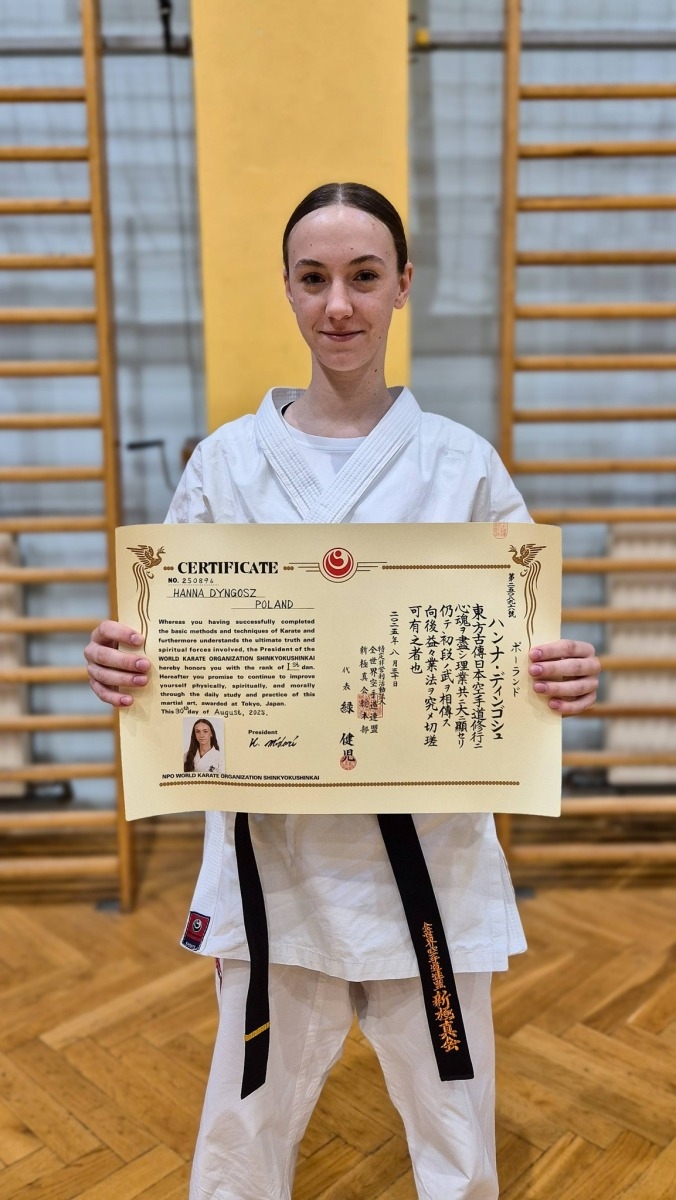 CERTIFICATE
NO. 250896
HANNA DYNGOSZ
POLAND
Whereas you having successfully completed
the basic methods and techniques of Karate and
furthermore understands the ultimate truth and
spiritual forces involved, the President of the
WORLD KARATE ORGANIZATION SHINKYOKUSHINKAI
hereby honors you with the rank of 1st dan.
Hereafter you promise to continue to improve
yourself physically, spiritually, and morally
through the daily study and practice of this
martial art, awarded at Tokyo, Japan.
This 30th day of August, 2025.
President
K. Midori
NPO WORLD KARATE ORGANIZATION SHINKYOKUSHINKAI
第二五〇八九六号
ポーランド
ハンナ・ディンゴシュ
東方古傳日本空手道修行ニ
心魂ヲ盡シ理業共ニ大ニ顯セリ
仍テ初段ノ武ヲ相傳ス
向後益々業法ヲ究メ切瑳
可有之者也
二〇二五年 八月三十日
特定非営利活動法人
全世界空手道連盟
新極真会総本部
代表 緑 健児
全世界空手道連盟 新極真会